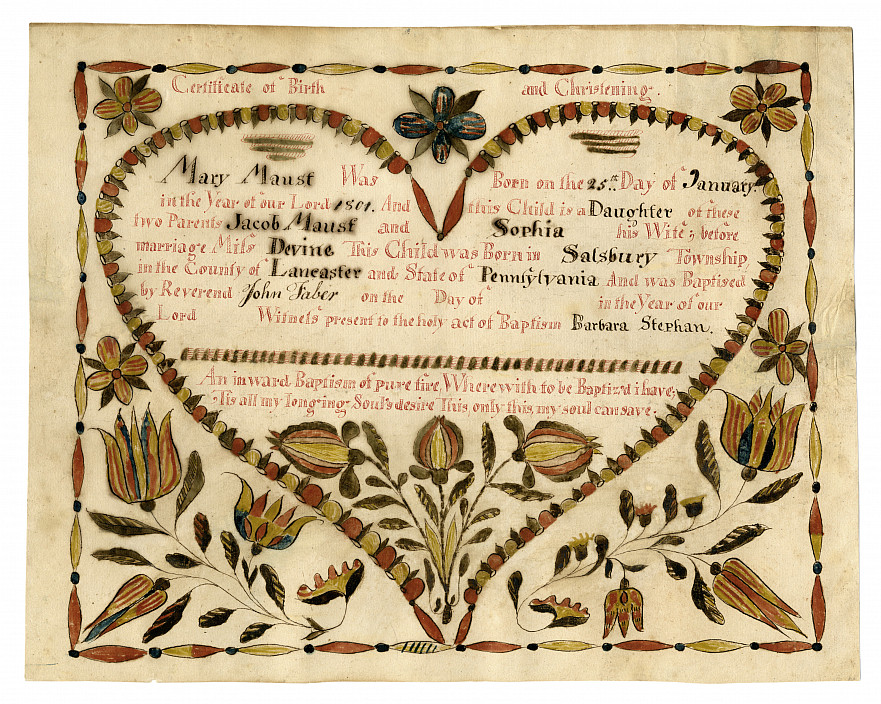 Certificate of Birth and Christening.
Mary Maust Was Born on the 25th Day of January.
in the Year of our Lord 1801. And this Child is a Daughter of these
two Parents Jacob Maust and Sophia his Wife; before
marriage Miſs Devine This Child was Born in Salsbury Township
in the County of Lancaster and State of Pennſylvania And was Baptised
by Reverend John Faber on the Day of in the Year of our
Lord Witneſs present to the holy act of Baptism Barbara Stephan.
An inward Baptism of pure fire, Wherewith to be Baptiz'd i have;
'Tis all my longing Soul's desire This, only this, my soul can save.